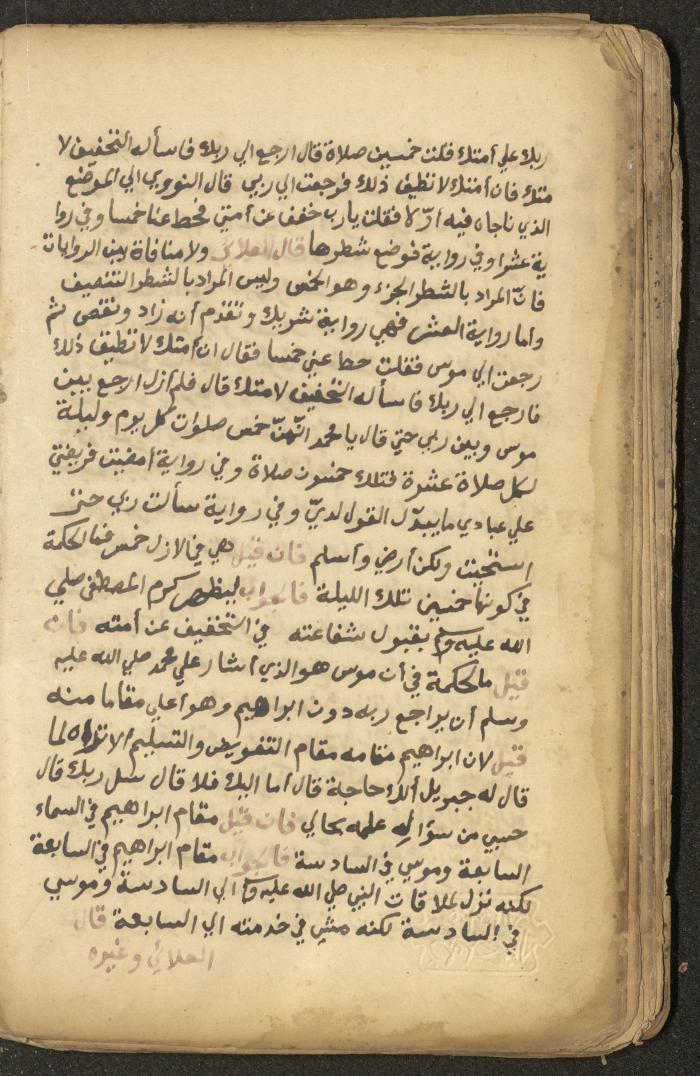 ربك علي أمتك قلت خمسين صلاة قال ارجع الي ربك فاسأله التخفيف لا
متك فان أمتك لا تطيق ذلك فرجعت الي ربي قال النووي الي الموضع
الذي ناجاه فيه أوّلا فقلت يارب خفف عن أمتي فحط عنا خمسا وفي روا
ية عشرا وفي رواية فوضع شطرها قال العلائي ولا منافاة بين الروايات
فانّ المراد بالشطر الجزء وهو الخمس وليس المراد بالشطر التنصيف
وأما رواية العشر فهي رواية شريك وتقدم أنه زاد ونقص ثم
رجعت الي موسي فقلت حط عني خمسا فقال ان أمتك لا تطيق ذلك
فارجع الي ربك فاسأله التخفيف لامتك قال فلم أزل ارجع بين
موسي وبين ربي حتي قال يا محمد انّهنّ خمس صلوات كل يوم وليلة
لكل صلاة عشرة فتلك خمسون صلاة وفي رواية أمضيت فريضتي
علي عبادي ما يبدّل القول لديّ وفي رواية سألت ربي حتي
استحييت ولكن أرضي وأسلم فان قيل هي في الازل خمس فما الحكمة
في كونها خمسين تلك الليلة فالجواب ليظهر كرم المصطفي صلي
الله عليه وسلم بقبول شفاعته في التخفيف عن أمته فان
قيل ما الحكمة في أن موسي هو الذي أشار علي محمد صلي الله عليه
وسلم أن يراجع ربه دون ابراهيم وهو أعلي مقاما منه
قيل لان ابراهيم مقامه مقام التفويض والتسليم ألا تراه لما
قال له جبريل ألك حاجة قال أما اليك فلا قال سل ربك قال
حسبي من سؤالي علمه بحالي فان قيل مقام ابراهيم في السماء
السابعة وموسي في السادسة فالجواب مقام ابراهيم في السابعة
لكنه نزل لملاقات النبي صلي الله عليه وسلم الي السادسة وموسي
في السادسة لكنه مشي في خدمته الي السابعة قال
العلائي وغيره